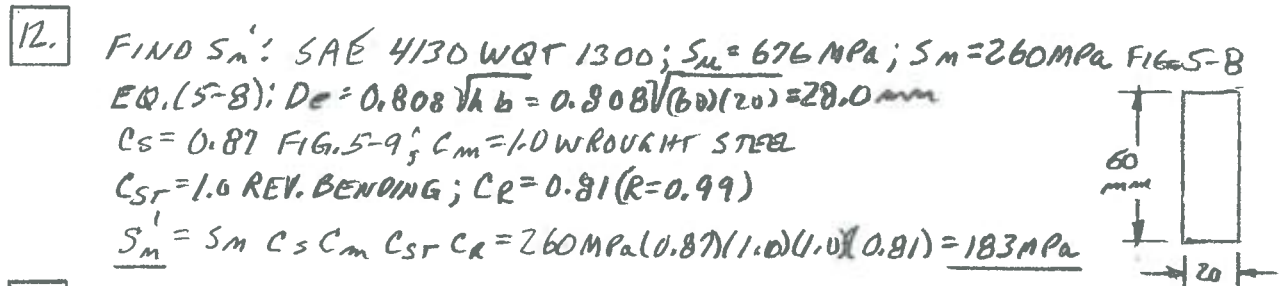 12.
FIND Sn': SAE 4130 WQT 1300; Su = 676 MPa; Sn = 260MPa FIG. 5-8
EQ. (5-8): De = 0.808 √hb = 0.808√(60)(20) = 28.0 mm
Cs = 0.87 FIG. 5-9; Cm = 1.0 WROUGHT STEEL
CST = 1.0 REV. BENDING; CR = 0.81 (R=0.99)
Sn' = Sn Cs Cm CST CR = 260MPa(0.87)(1.0)(1.0)(0.81) = 183MPa
60
mm
20